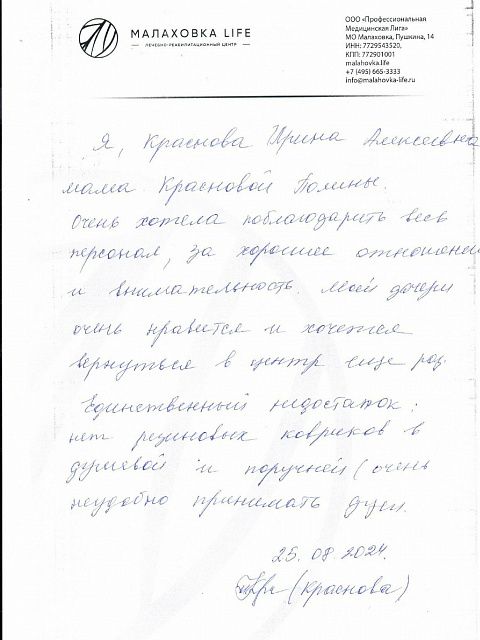 МАЛАХОВКА LIFE
ЛЕЧЕБНО-РЕАБИЛИТАЦИОННЫЙ ЦЕНТР
ООО «Профессиональная
Медицинская Лига»
МО Малаховка, Пушкина, 14
ИНН: 7729543520,
КПП: 772901001
malahovka.life
+7 (495) 665-3333
info@malahovka-life.ru
Я, Краснова Ирина Алексеевна
мама Красновой Полины.
Очень хотела поблагодарить весь
персонал, за хорошее отношение
и внимательность. Моей дочери
очень нравится и хочется
вернуться в центр еще раз.
Единственный недостаток:
нет резиновых ковриков в
душевой и поручней (очень
неудобно принимать душ.
25.08.2024.
(Краснова)